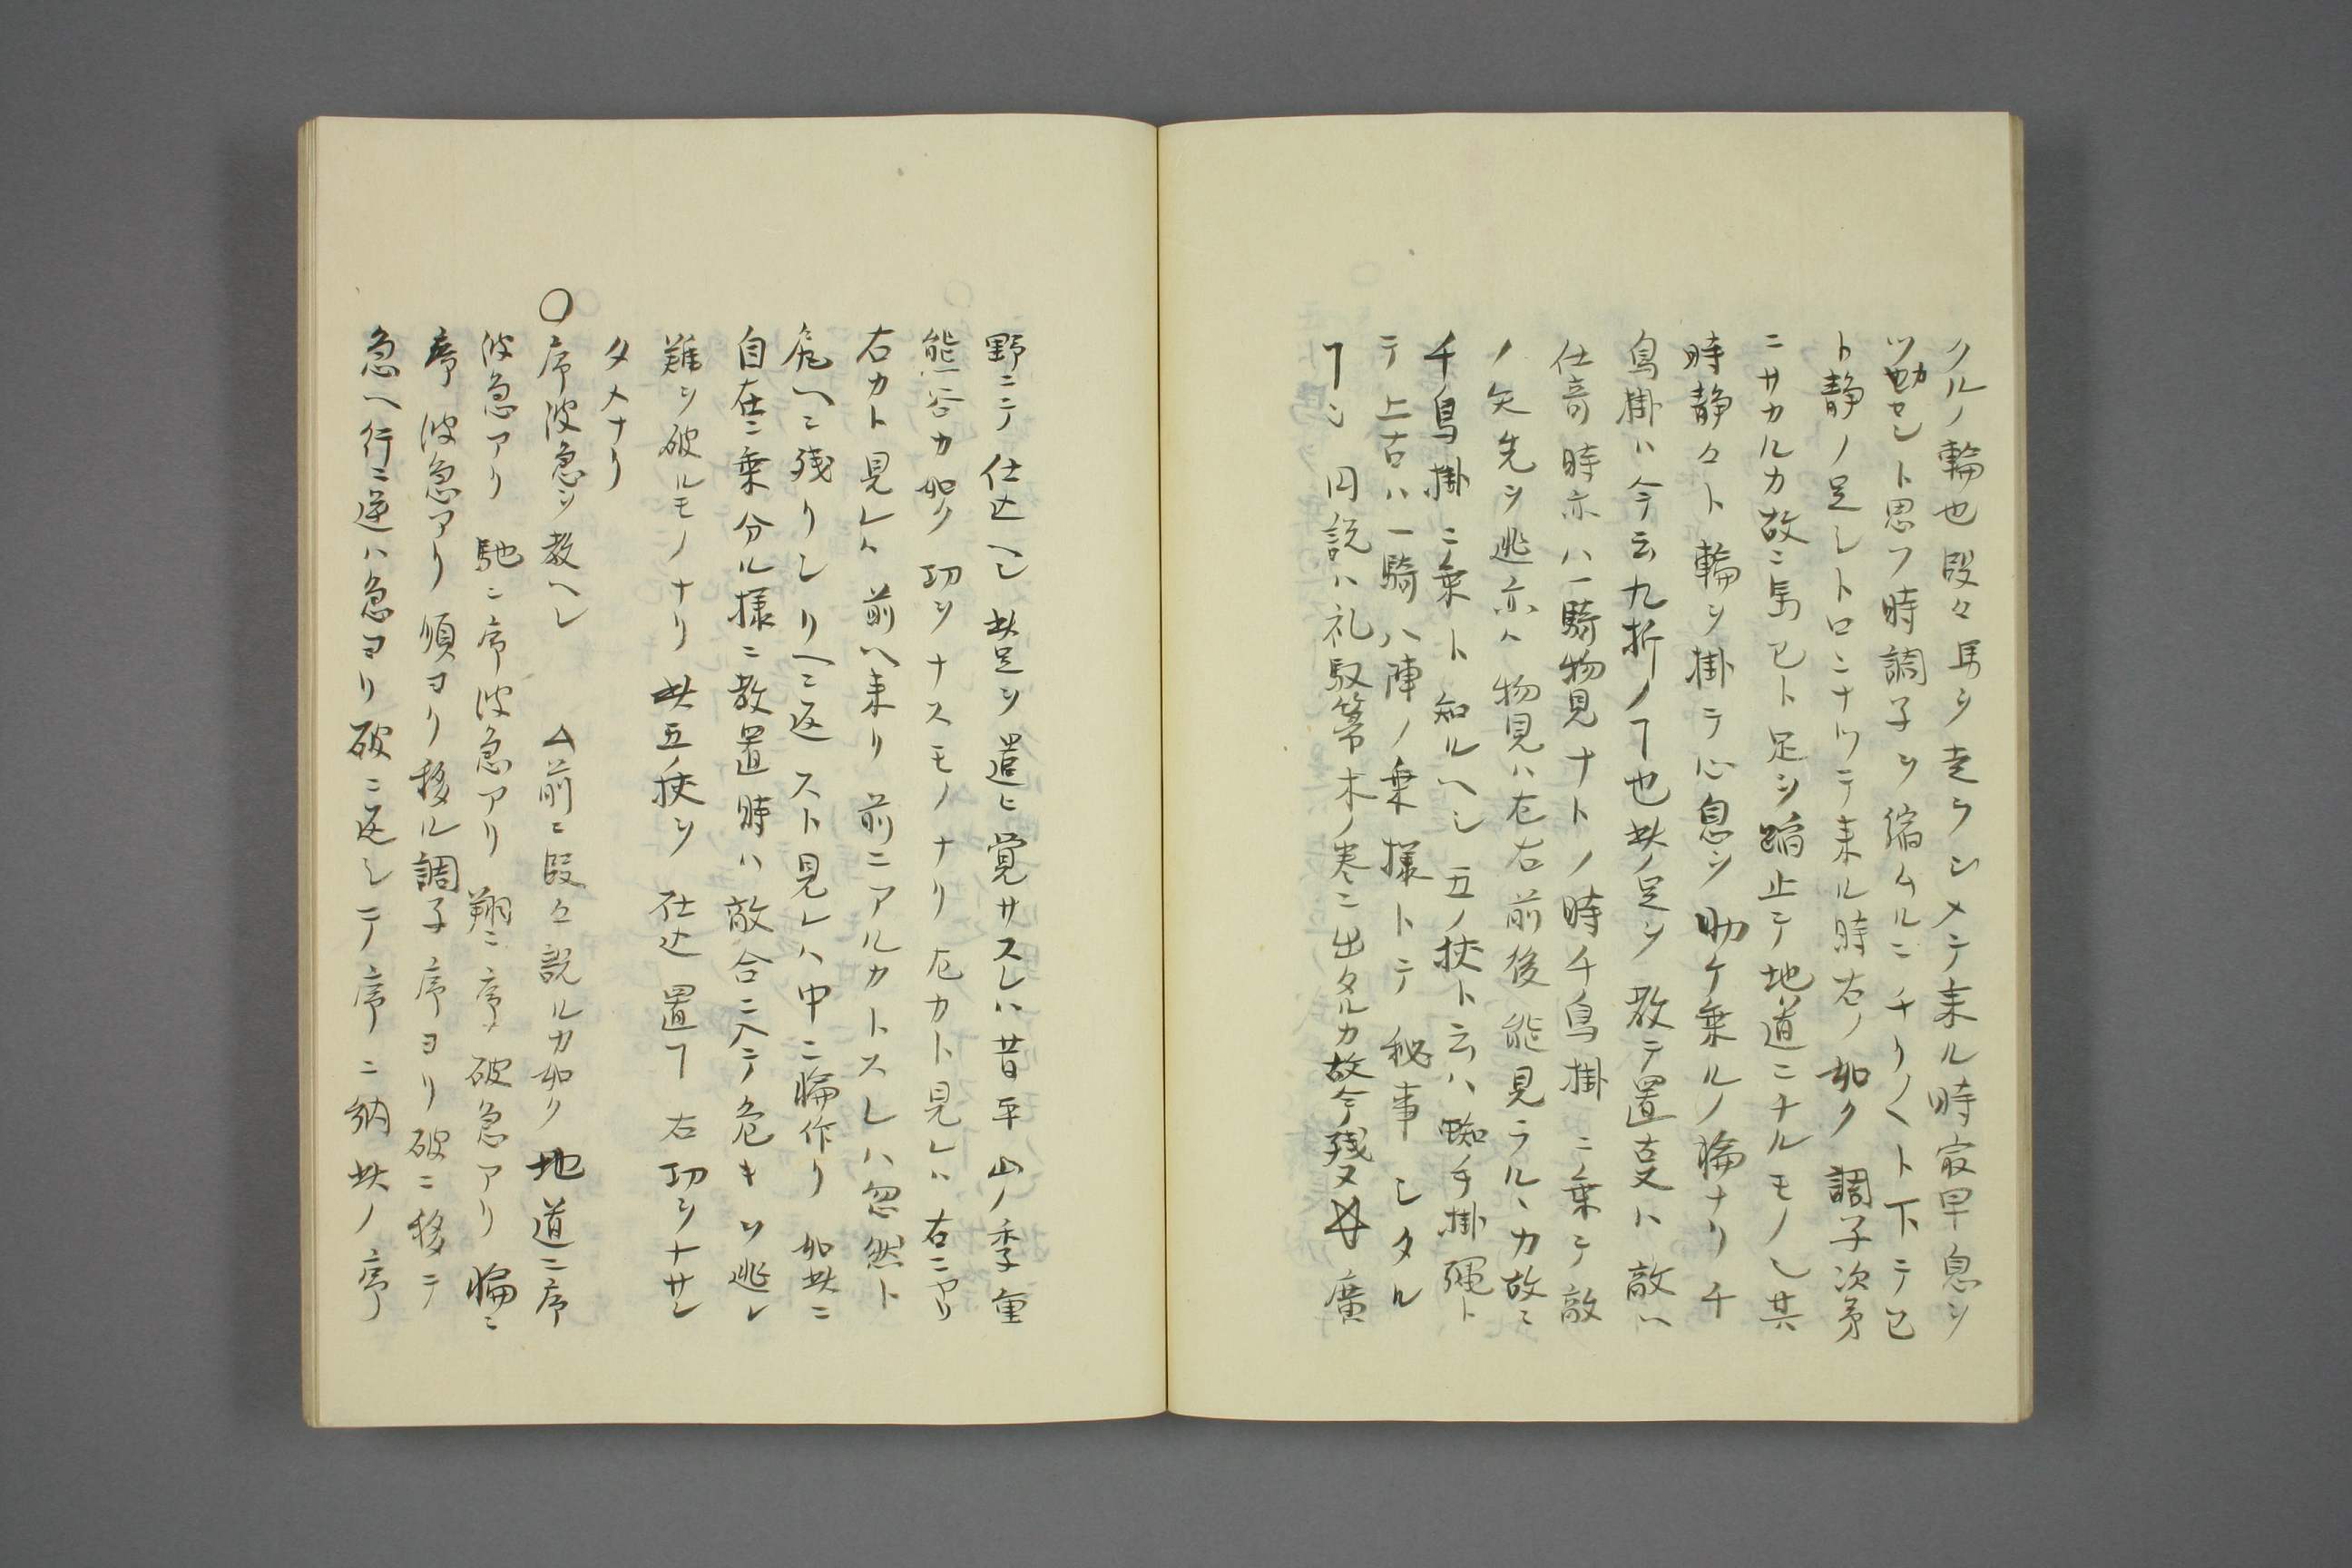 クルノ輪也段々馬ヲ走ラシメテ来ル時最早息ヲ
ツカセント思フ時調子ヲ縮ムルニチリ〱ト下テ已
ト静ノ足シトロニナリテ来ル時右ノ如ク調子次第
ニサカルカ故ニ馬已ト足ヲ蹈止テ地道ニナルモノ也其
時静々ト輪ヲ掛テ心息ヲ助ケ乗ルノ輪ナリ千
鳥掛ハ今云九折ノヿ也此ノ足ヲ教テ置古又ハ敵ヘ
仕寄時亦ハ一騎物見ナトノ時千鳥掛ニ乗テ敵
ノ矢先ヲ逃亦ハ物見ハ左右前後能見ラルヽカ故ニ
千鳥掛ニ乗ト知ルヘシ五ノ挟ト云ハ蜘手掛縄ト
テ上古ハ一騎八陣ノ乗様トテ秘事シタル
ヿ也口説ハ礼馭箒木ノ巻ニ出タルカ故今残又也廣
野ニテ仕込ヘシ此足ヲ遣ヒ覚サスレハ昔平山ノ季重
熊谷カ如ク功ヲナスモノナリ左カト見レハ右ニヤリ
右カト見レハ前ヘ来リ前ニアルカトスレハ忽然ト
尻ヘニ残リシリヘニ返スト見レハ中ニ輪作リ如此ニ
自在ニ乗分ル様ニ教置時ハ敵合ニ入テ危キヲ逃レ
難ヲ破ルモノナリ此五ノ挟ヲ仕込置ヿ右功ヲナサン
タメナリ
〇序波急ヲ教ヘシ △前ニ段々説ルカ如ク地道ニ序
波急アリ馳ニ序波急アリ翔ニ序破急アリ輪ニ
序波急アリ順ヨリ移ル調子序ヨリ破ニ移テ
急ヘ行ニ逆ハ急ヨリ破ニ返シテ序ニ納此ノ序